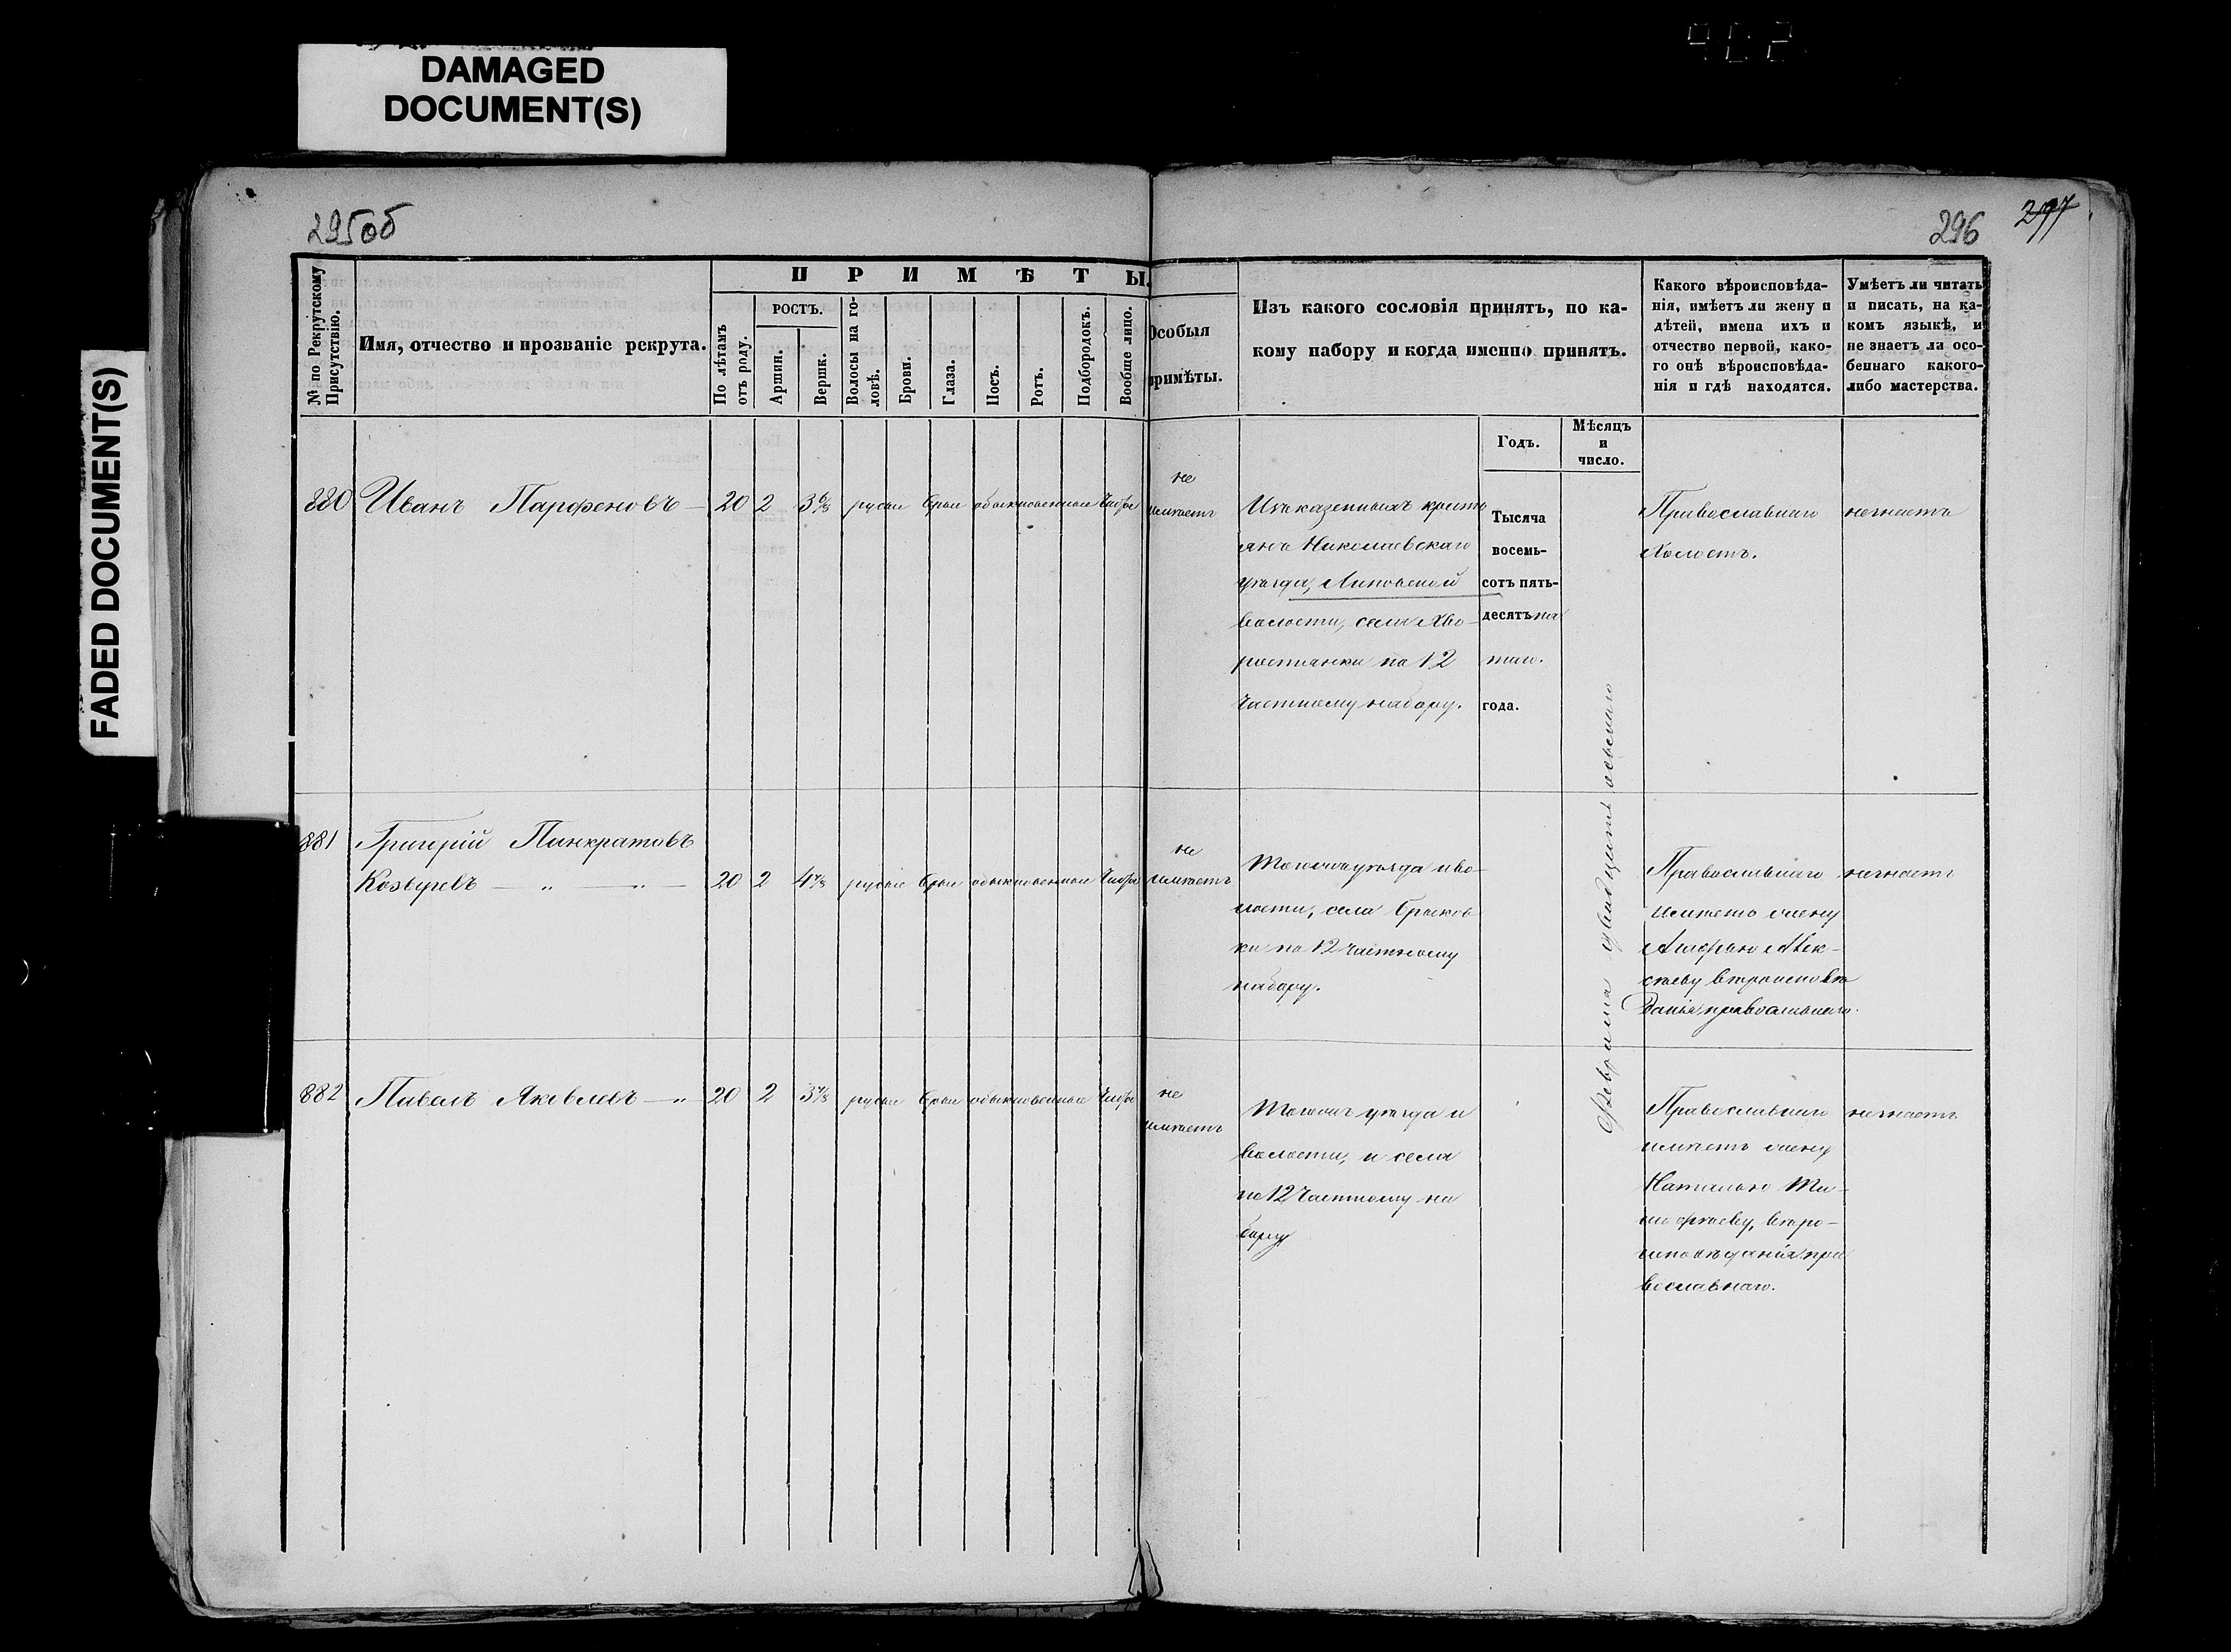 DAMAGED
DOCUMENT(S)
FADED DOCUMENT(S)
295об
296
297
№ по Рекрутскому
Присутствію.
Имя, отчество и прозваніе рекрута.
ПРИМѢТЫ.
По лѣтамъ
отъ роду.
РОСТЪ.
Аршин.
Вершк.
Волосы на го-
ловѣ.
Брови.
Глаза.
Носъ.
Ротъ.
Подбородокъ.
Вообще лицо.
Особыя
примѣты.
Изъ какого сословія принятъ, по ка-
кому набору и когда именно принятъ.
Годъ.
Мѣсяцъ
и
число.
Какого вѣроисповѣда-
нія, имѣетъ ли жену и
дѣтей, имена ихъ и
отчество первой, како-
го онѣ вѣроисповѣда-
нія и гдѣ находятся.
Умѣетъ ли читать
и писать, на ка-
комъ языкѣ, и
не знаетъ ли осо-
беннаго какого-
либо мастерства.
880 Иванъ Парфеновъ — 20 2 3 6/8 русые обыкновенные чистое
не
имѣетъ
Изъ казенныхъ кресть
янъ Николаевскаго
уѣзда, Липовской
волости, села Хво-
ростянки по 12
частному набору.
Тысяча
восемь-
сотъ пять-
десятъ пя
таго.
года.
Февраля двадцать осьмаго
Православнаго
Холостъ.
незнаетъ
881 Григорій Панкратовъ
Козыревъ — „ — „ — 20 2 4 4/8 русые обыкновенные чистое
не
имѣетъ
Тогоже уѣзда и во-
лости, села Брыков
ки по 12 частному
набору.
Православнаго
имѣетъ жену
Алек-
сѣеву вѣроисповѣ
данія православнаго.
незнаетъ
882 Павелъ Яковлевъ — „ 20 2 3 4/8 русые обыкновенные чистое
не
имѣетъ
Тогоже уѣзда и
волости, и села
по 12 частному на
бору
Православнаго
имѣетъ жену
Наталью Ти-
мофѣеву, вѣро-
исповѣданія пра
вославнаго.
незнаетъ